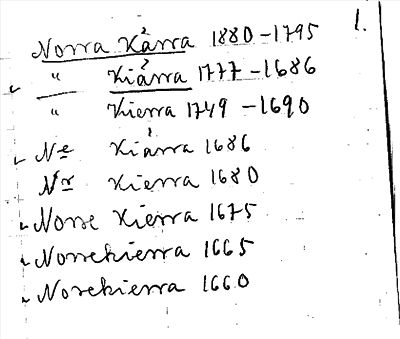 1.
Norra Kärra 1880-1795
" Kiärra 1777-1686
" Kierra 1749-1690
Ne Kiärra 1686
Nr Kierra 1680
Norre Kierra 1675
Norrekierra 1665
Norekierra 1660